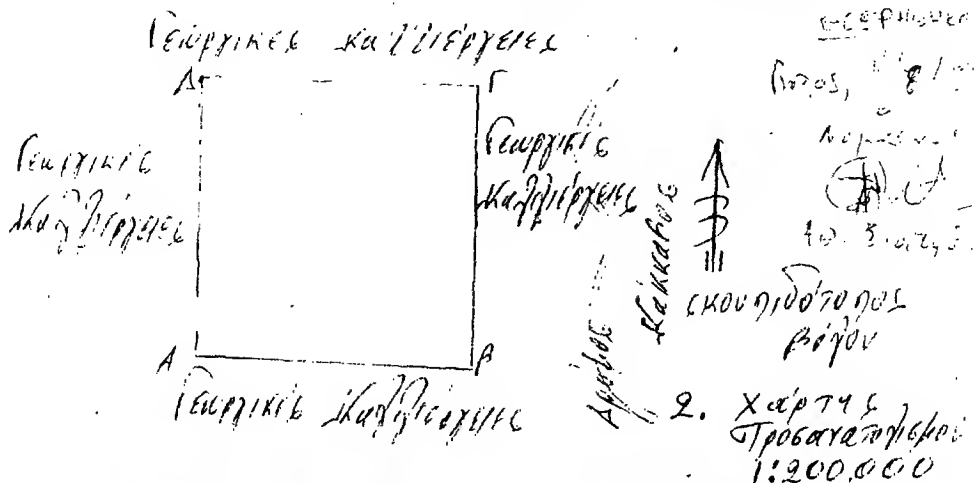 Γεωργικές καλλιέργειες
Δ Γ
Γεωργικές
καλλιέργειες
Γεωργικές
καλλιέργειες
Α Β
Γεωργικές καλλιέργειες
Δρόμος
Κάκκαβος
σκουπιδότοπος
2. Χάρτης
Προσανατολισμού
1:200.000